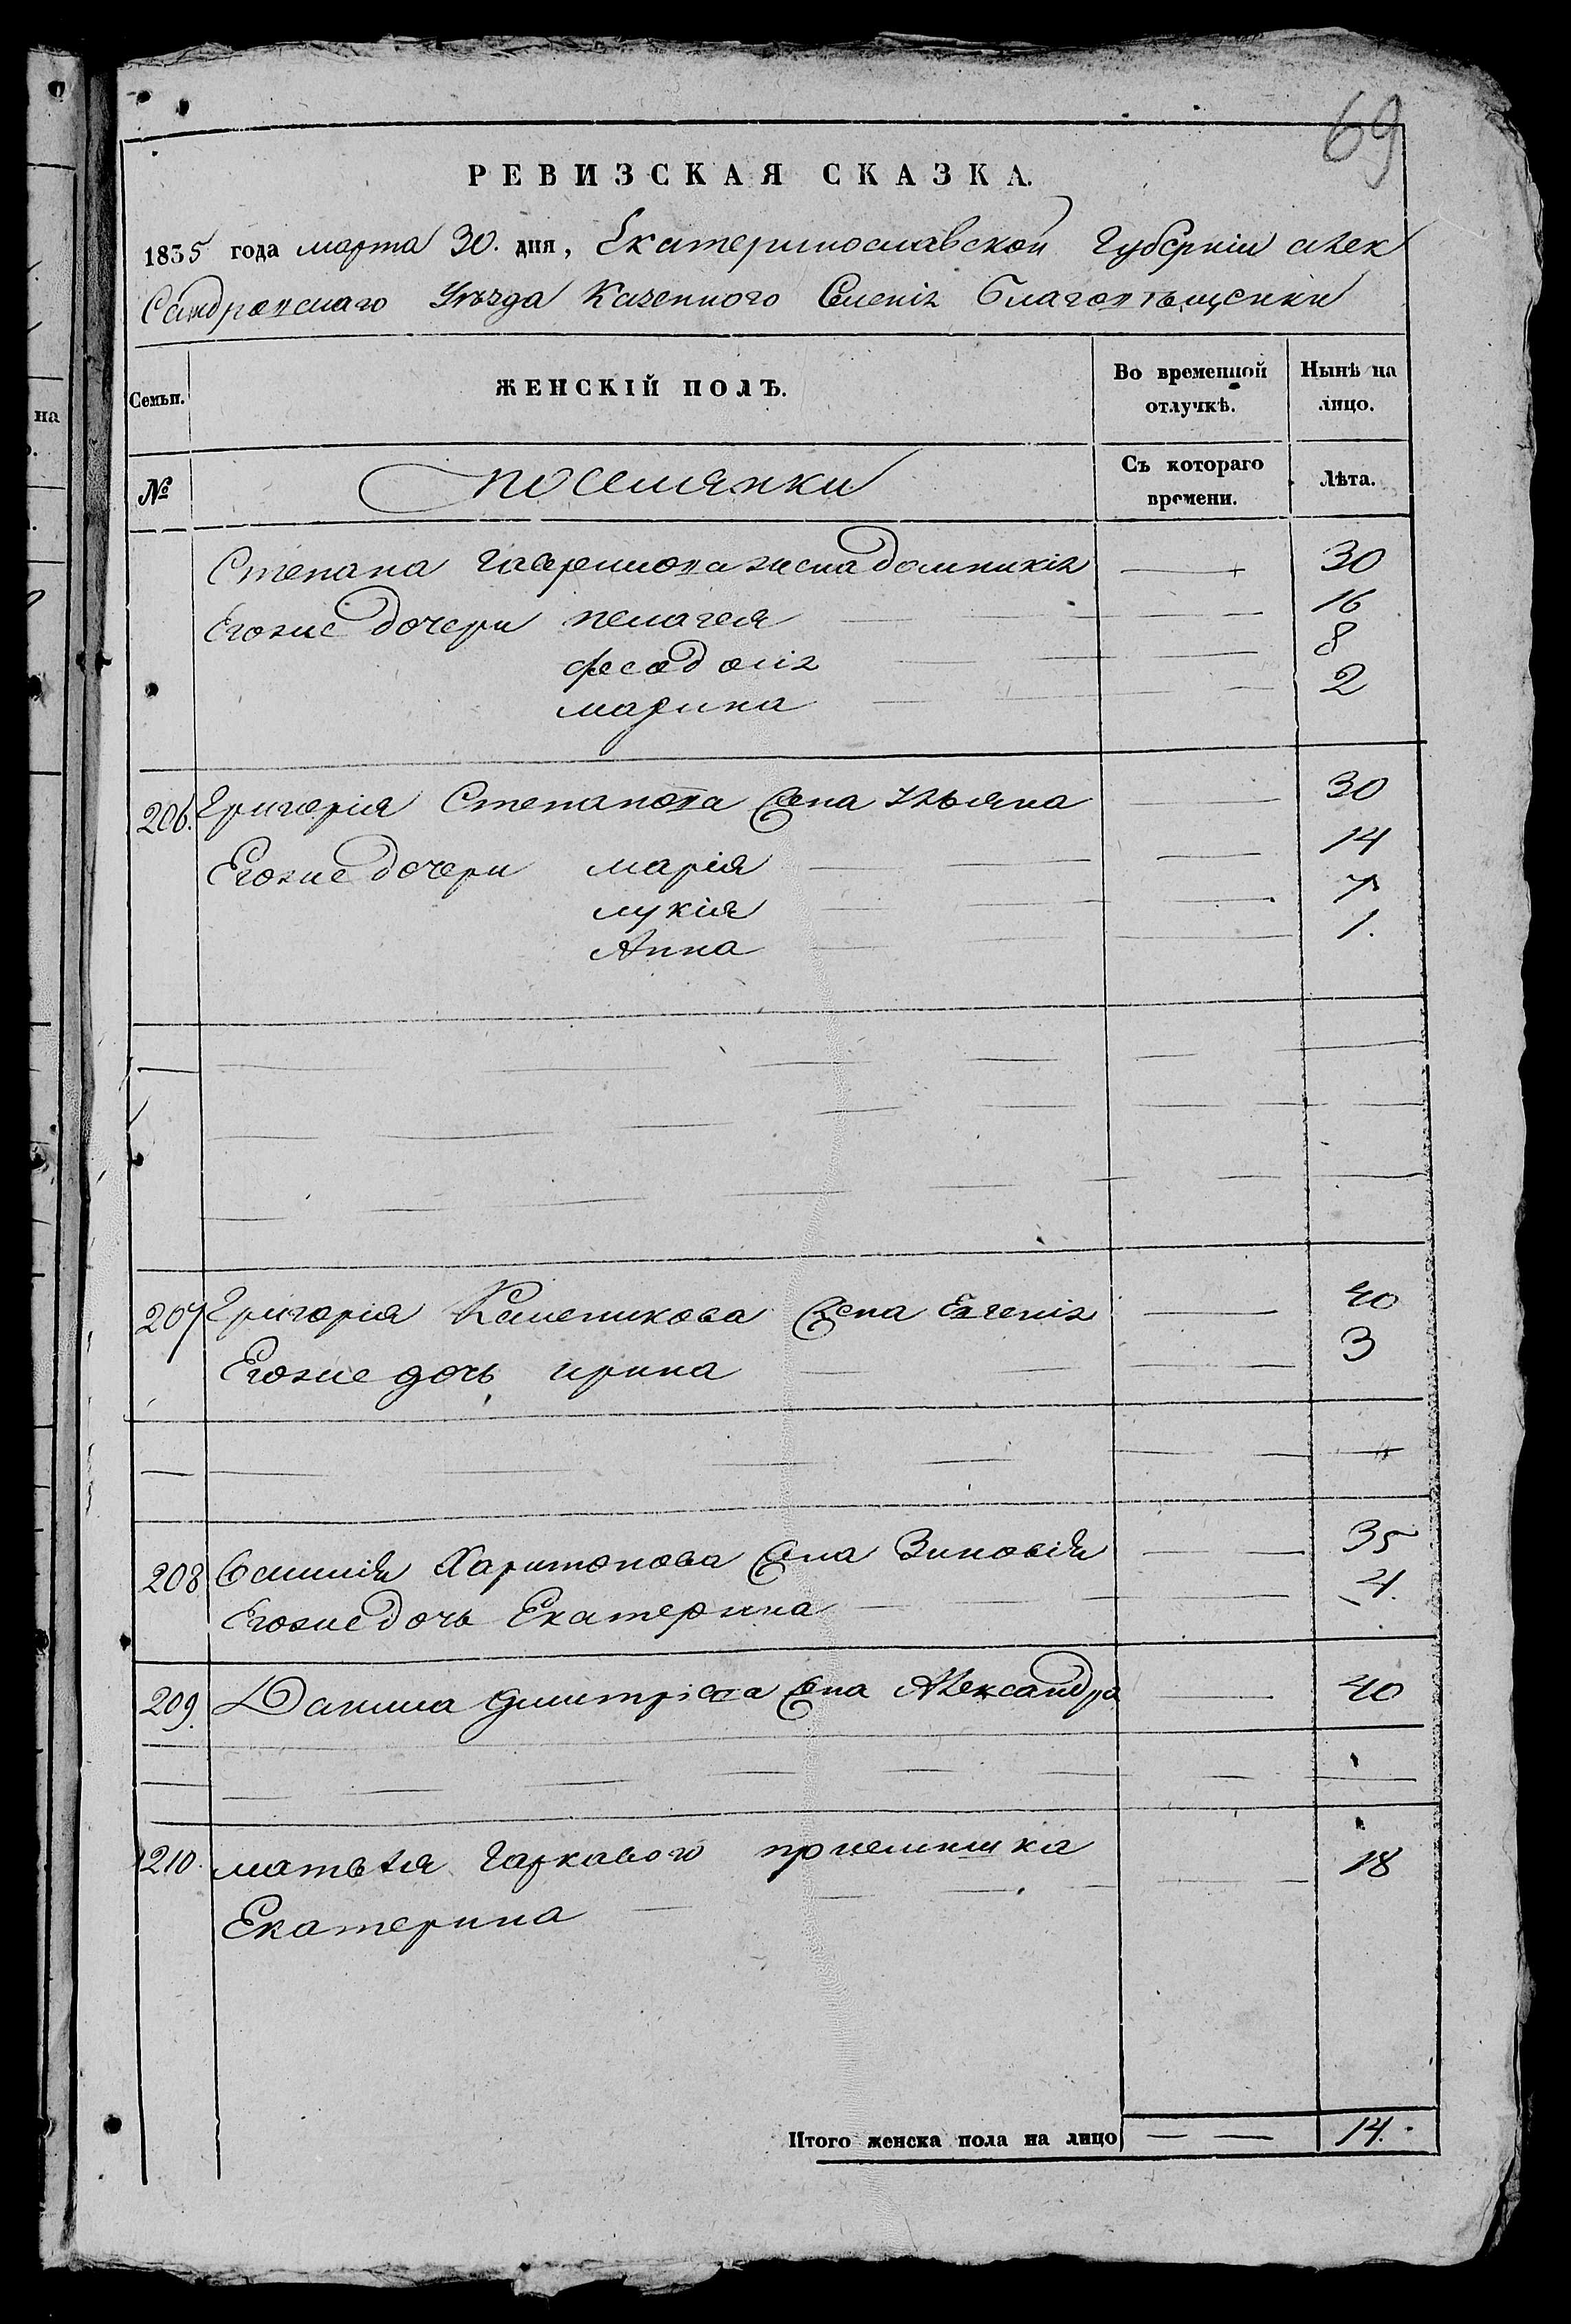 69
РЕВИЗСКАЯ СКАЗКА.
1835 года марта 30. дня, Екатеринославской Губерніи алек
Сандровскаго Уѣзда Казенного Селенія Благовѣщенки
на
Семьи. ЖЕНСКІЙ ПОЛЪ. Во временной отлучкѣ. Нынѣ на лицо.
№ поселянки Съ котораго времени. Лѣта.
Степана Гаврилова жена домникія — 30
Егоже дочери пелагея — 16
феодосія — 8
марина — 2
206. Григорія Степанова жена Ульяна — 30
Егоже дочери марія — 14
лукія — 7
Анна — 1.
207 Григорія Калепикова жена Евгенія — 40
Егоже дочь ирина — 3
208 Харитонова жена Зиновія — 35
Егоже дочь Екатерина — 4.
209. Данила Дмитріева жена Александра — 40
210. матвея Гаркавого приемишка — 18
Екатерина
Итого женска пола на лицо — — 14.